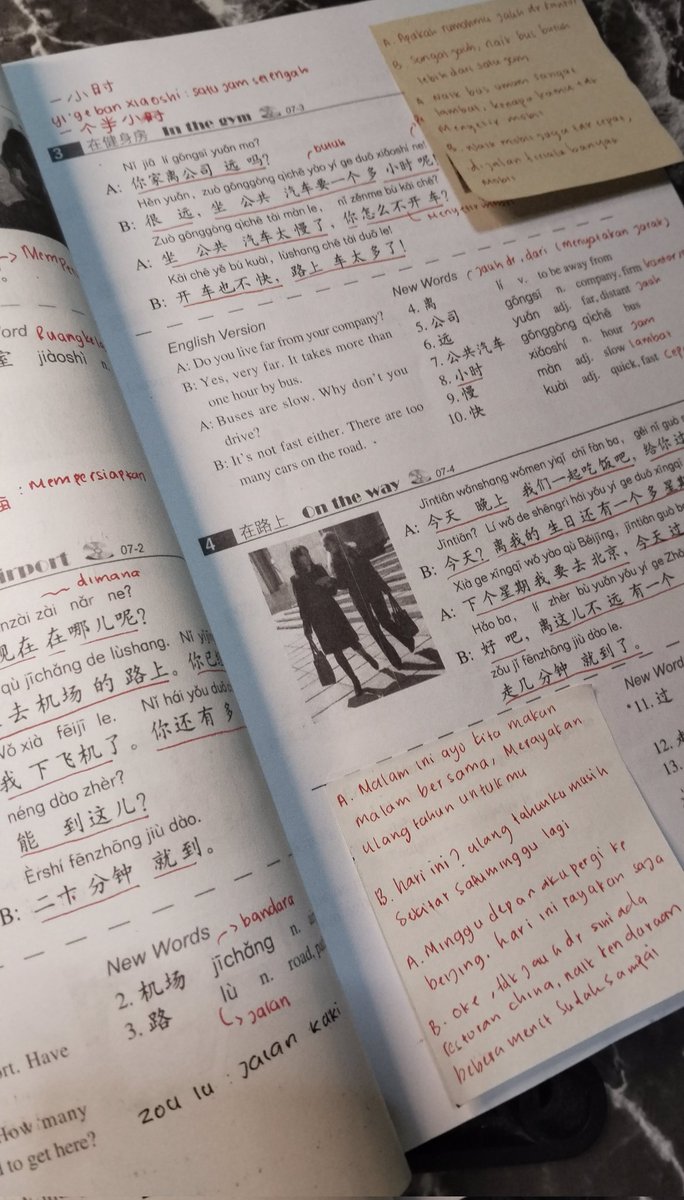 一小时
yi ge ban xiaoshi : satu jam setengah
一个半小时
3 在健身房 In the gym 07-3
Nǐ jiā lí gōngsī yuǎn ma?
butuh
A: 你家离公司 远 吗?
Hěn yuǎn, zuò gōnggòng qìchē yào yí ge duō xiǎoshí ne!
B: 很 远, 坐 公共 汽车要一个 多 小时 呢!
Zuò gōnggòng qìchē tài màn le, nǐ zěnme bù kāi chē?
A: 坐 公共 汽车太慢了, 你怎么不开 车?
Kāi chē yě bú kuài, lùshang chē tài duō le!
B: 开 车也 不 快, 路上 车太 多了!
A. Apakah rumahmu jauh dr kantor
B. Sangat jauh, naik bus butuh
lebih dari satu jam
A. Naik bus umum sangat
lambat, kenapa kamu tdk
Menyetir mobil
B. naik mobil juga tdk cepat,
di jalan terlalu banyak
mobil
English Version
A: Do you live far from your company?
B: Yes, very far. It takes more than
one hour by bus.
A: Buses are slow. Why don't you
drive?
B: It's not fast either. There are too
many cars on the road.
New Words
jauh dr, dari (menyatakan jarak)
4. 离 lí v. to be away from
5. 公司 gōngsī n. company, firm kantor
6. 远 yuǎn adj. far, distant jauh
7. 公共汽车 gōnggòng qìchē bus
8. 小时 xiǎoshí n. hour jam
9. 慢 màn adj. slow lambat
10. 快 kuài adj. quick, fast
4 在路上 On the way 07-4
Jīntiān wǎnshang wǒmen yìqǐ chī fàn ba, gěi nǐ guò
A: 今天 晚上 我们一起吃饭吧, 给你过
Jīntiān? Lí wǒ de shēngrì hái yǒu yí ge duō xīngqī
B: 今天? 离我的 生日还有一个 多 星期
Xià ge xīngqī wǒ yào qù Běijīng, jīntiān guò ba
A: 下个星期我 要 去 北京, 今天 过
Hǎo ba, lí zhèr bù yuǎn yǒu yí ge
B: 好 吧, 离这儿不 远 有一个
zǒu jǐ fēnzhōng jiù dào le.
走几 分钟 就到了。
New Words
*11. 过
12.
13.
A. Malam ini ayo kita makan
malam bersama, Merayakan
ulang tahun untukmu
B. hari ini? ulang tahunku masih
Sekitar satu minggu lagi
A. Minggu depan aku pergi ke
beijing. hari ini rayakan saja
B. oke, tdk jauh dr sini ada
restoran china, naik kendaraan
beberapa menit sudah sampai
室 jiàoshì n.
: Mempersiapkan
irport 07-2
dimana
nzài zài nǎr ne?
现在 在哪儿呢?
qù jīchǎng de lùshang.
去 机场 的 路上。
Wǒ xià fēijī le. Nǐ hái yǒu duō
我 下飞机了。你还有多
néng dào zhèr?
能 到这儿?
Èrshí fēnzhōng jiù dào.
B: 二十分钟 就到。
New Words
bandara
2. 机场 jīchǎng n.
3. 路 lù n. road,
jalan
zou lu : jalan kaki
ort. Have
How many
l to get here?